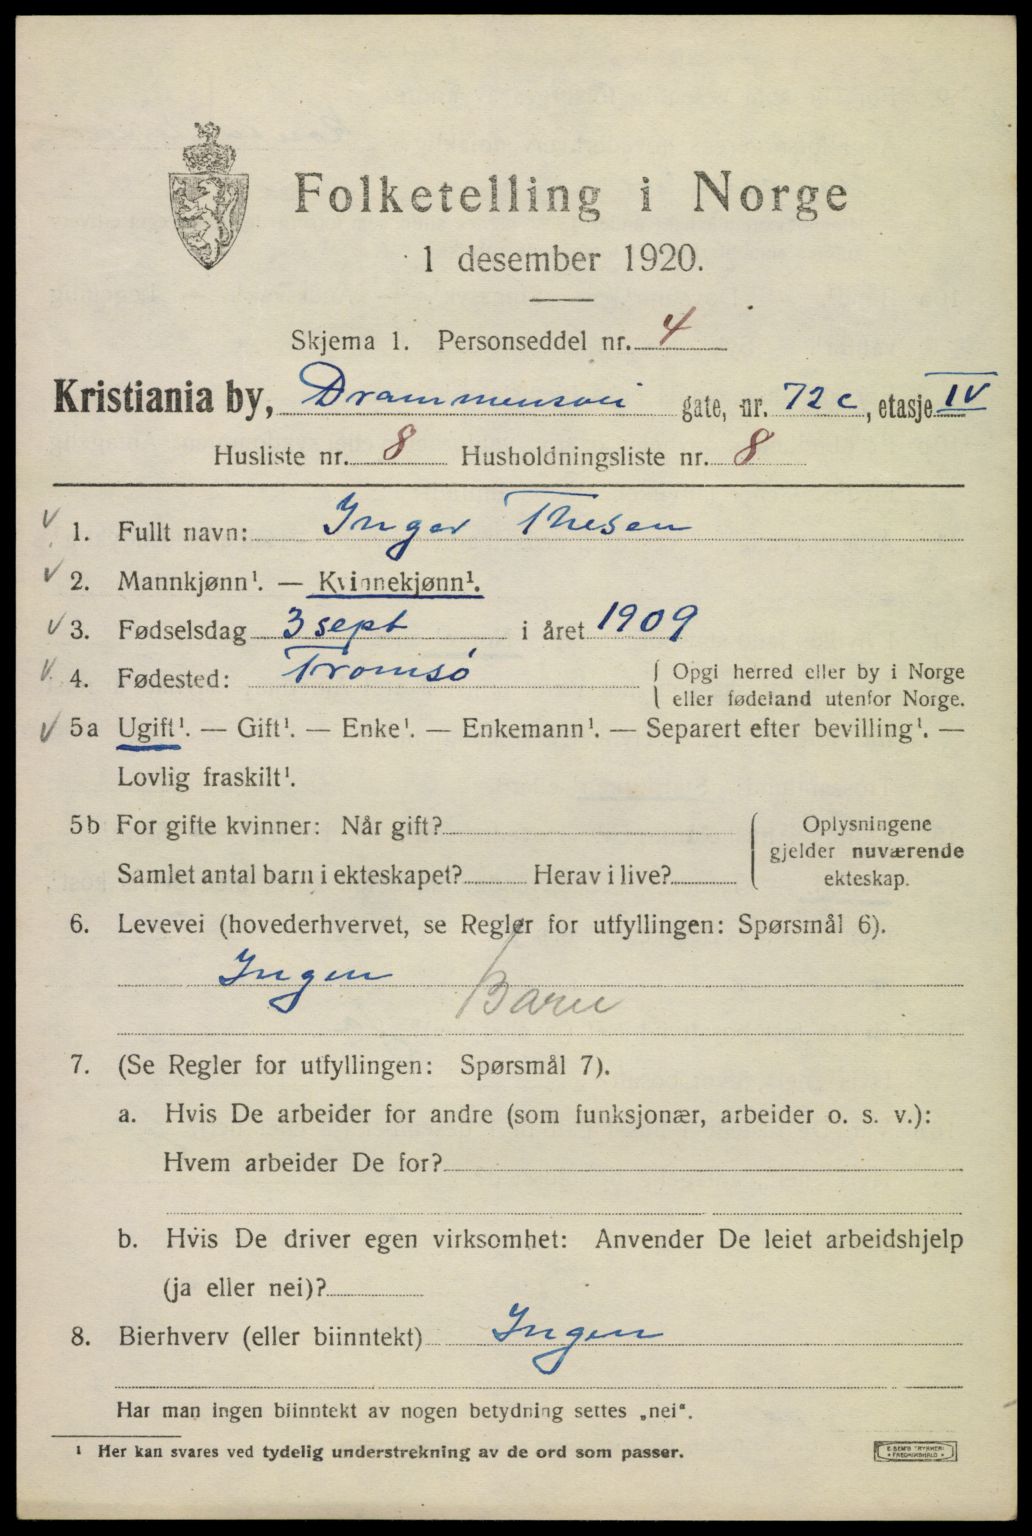 Folketelling i Norge
1 desember 1920.
Skjema 1. Personseddel nr. 4
Kristiania by, Drammensvei gate, nr. 72 c, etasje IV
Husliste nr. 8 Husholdningsliste nr. 8
1. Fullt navn: Inger Thesen
2. Mannkjønn¹. — Kvinnekjønn¹.
3. Fødselsdag 3 sept i året 1909
4. Fødested: Tromsø { Opgi herred eller by i Norge
eller fødeland utenfor Norge.
5a Ugift¹. — Gift¹. — Enke¹. — Enkemann¹. — Separert efter bevilling¹. —
Lovlig fraskilt¹.
5b For gifte kvinner: Når gift? { Oplysningene
gjelder nuværende
Samlet antal barn i ekteskapet? Herav i live? ekteskap.
6. Levevei (hovederhvervet, se Regler for utfyllingen: Spørsmål 6).
Ingen Barn
7. (Se Regler for utfyllingen: Spørsmål 7).
a. Hvis De arbeider for andre (som funksjonær, arbeider o. s. v.):
Hvem arbeider De for?
b. Hvis De driver egen virksomhet: Anvender De leiet arbeidshjelp
(ja eller nei)?
8. Bierhverv (eller biinntekt) Ingen
Har man ingen biinntekt av nogen betydning settes „nei“.
¹ Her kan svares ved tydelig understrekning av de ord som passer.